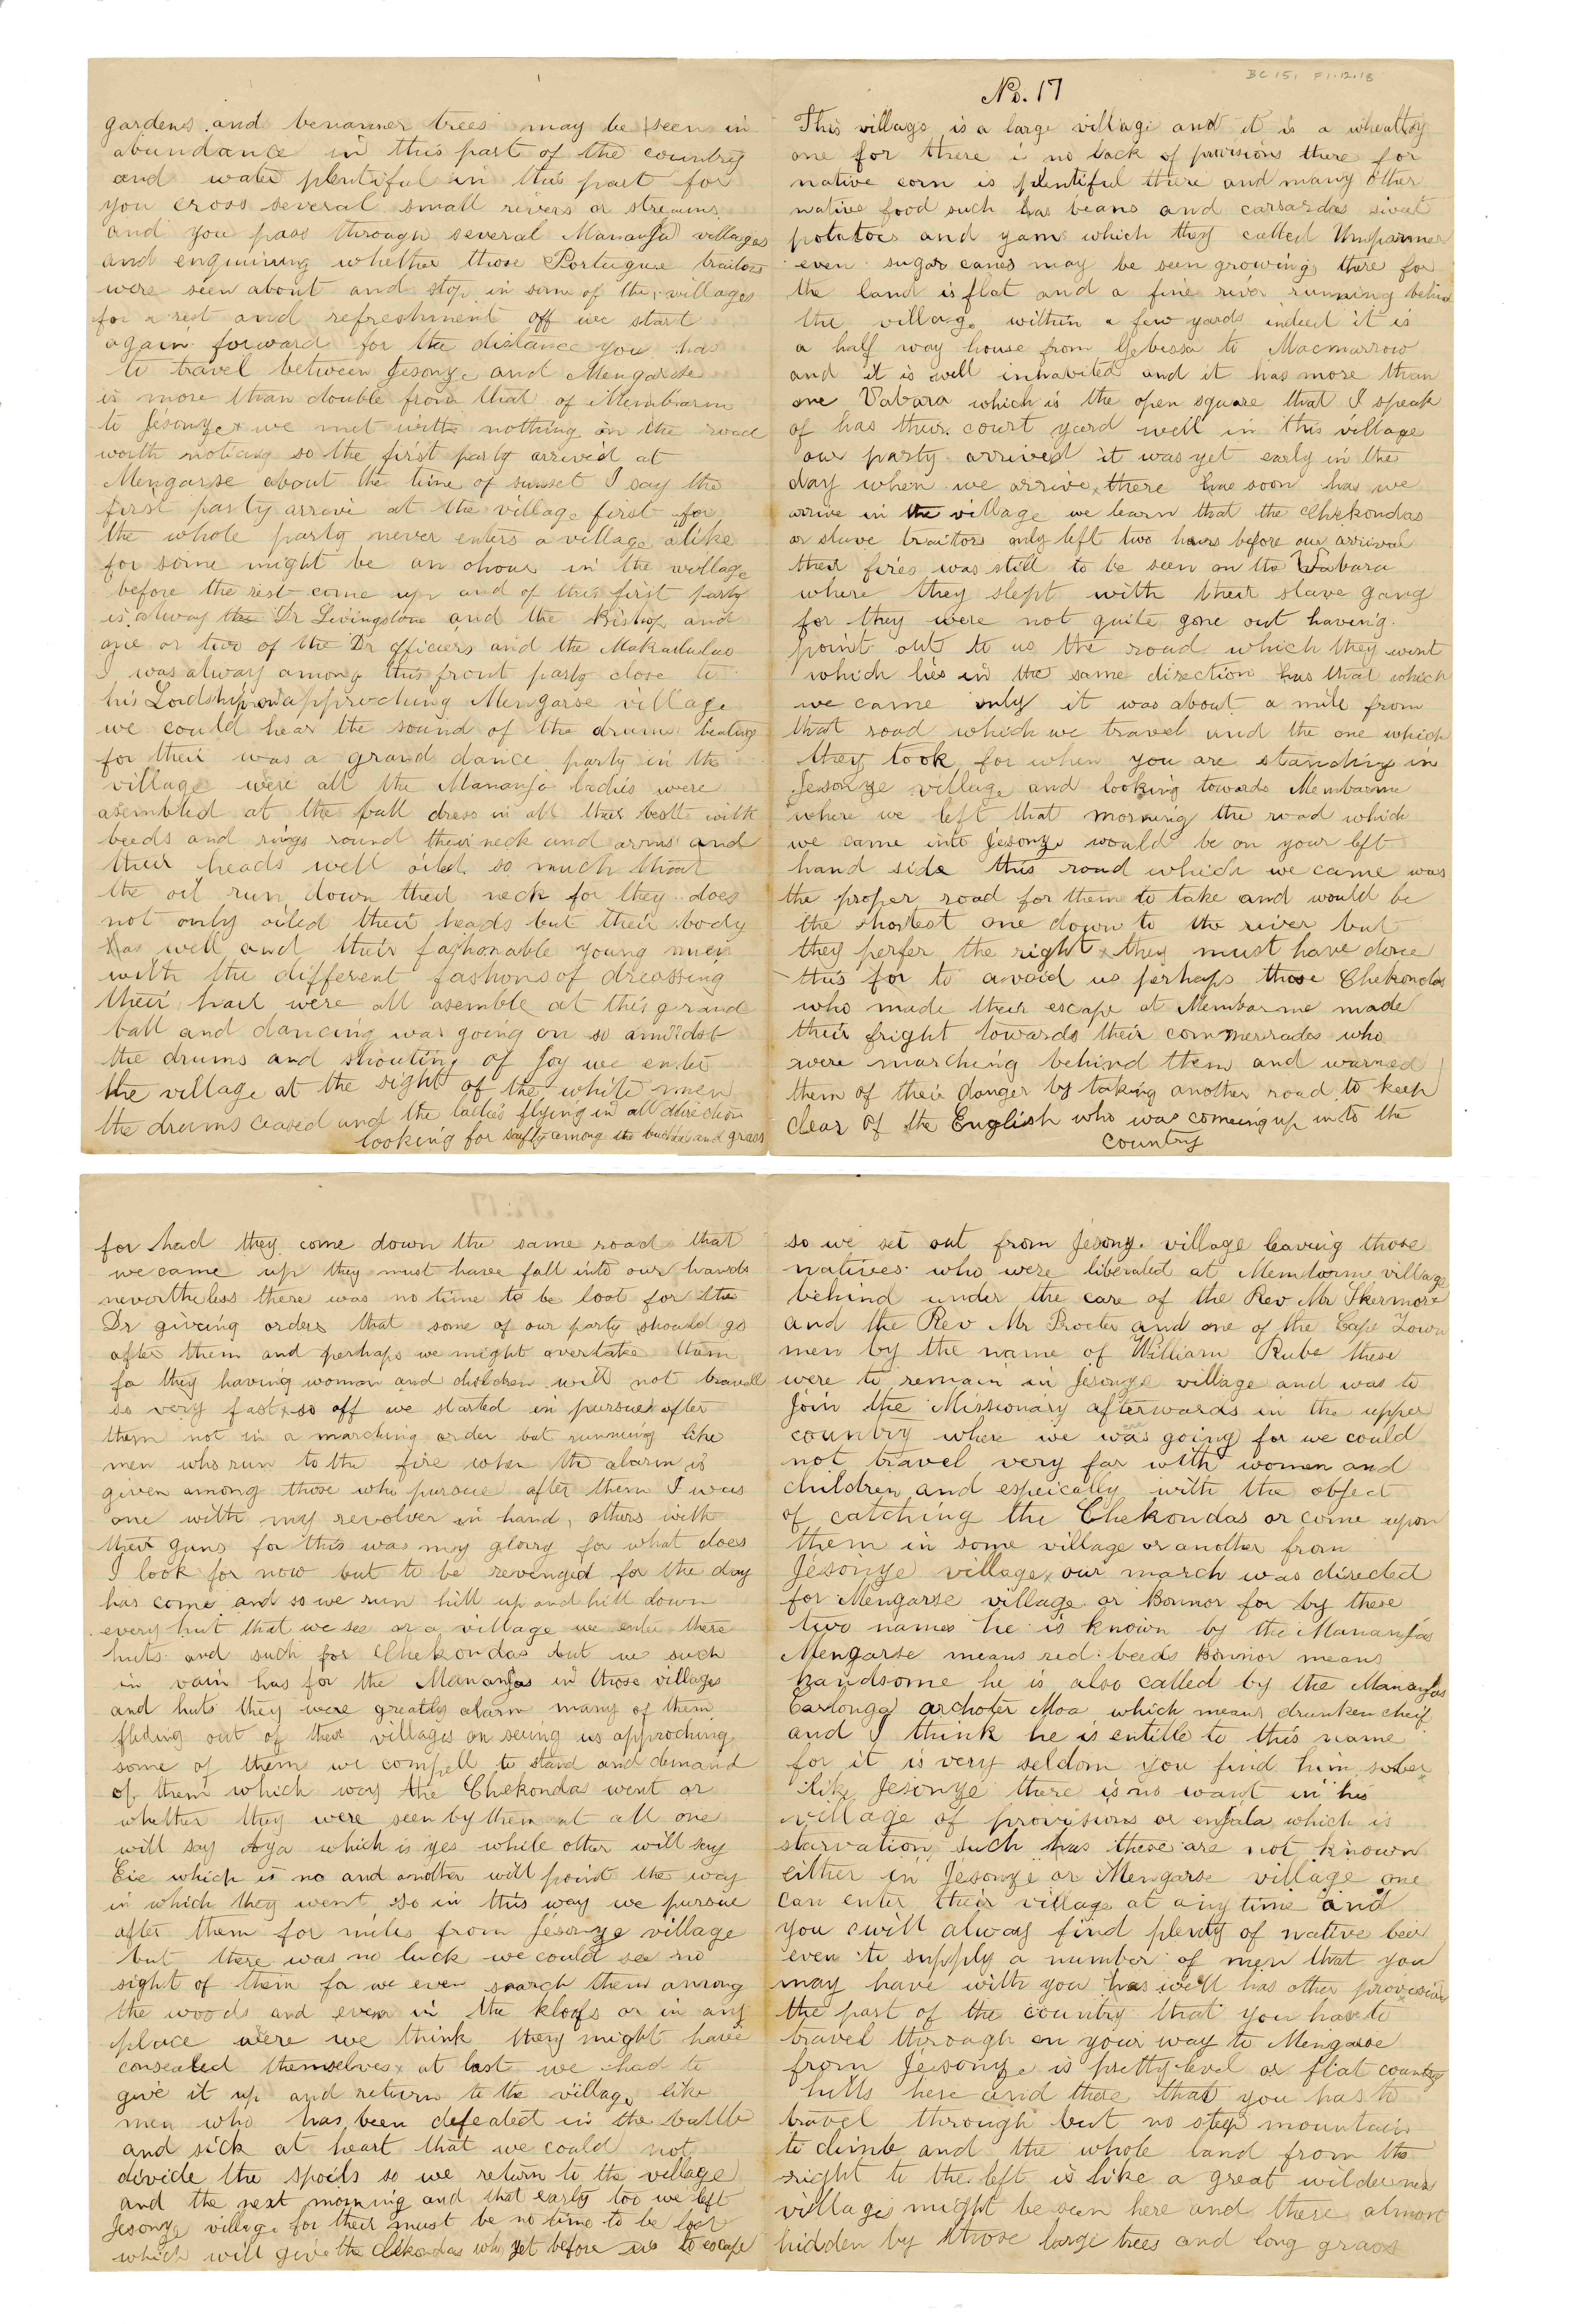 BC 151 F1.12.18
No. 17
This village is a large village and it is a whealthy
one for there is no lack of provisions there for
native corn is plentiful there and many other
native food such has beans and carsardas sweet
potatoes and yam which they called
even sugar canes may be seen growing there for
the land is flat and a fine river running behind
the village within a few yards indeed it is
a half way house from Gebissa to Macmarrow
and it is well inhabited and it has more than
one Vabara which is the open square that I speak
of has their court yard well in this village
our party arrived it was yet early in the
day when we arrive there has soon has we
arrive in the village we learn that the Chekondas
or slave traitors only left two hours before our arrival
their fires was still to be seen on the Vabara
where they slept with their slave gang
for they were not quite gone out having
point out to us the road which they went
which lies in the same direction has that which
we came only it was about a mile from
that road which we travel and the one which
they took for when you are standing in
Jesonye village and looking towards Membarme
where we left that morning the road which
we came into Jesonye would be on your left
hand side this road which we came was
the proper road for them to take and would be
the shortest one down to the river but
they perfer the right x they must have done
this for to avoid us perhaps those Chekondas
who made their escape at Membarme made
their fright towards their commerrades who
were marching behind them and warned
them of their danger by taking another road to keep
clear of the English who was comeing up into the
country
for had they come down the same road that
we came up they must have fall into our hands
nevertheless there was no time to be lost for the
Dr giveing orders that some of our party should go
after them and perhaps we might overtake them
for they having woman and children will not travell
so very fast x so off we started in pursue after
them not in a marching order but running like
men who run to the fire when the alarm is
given among those who pursue after them I was
one with my revolver in hand, others with
their guns for this was my glorry for what does
I look for now but to be revenged for the day
has come and so we run hill up and hill down
every hut that we see or a village we enter there
huts and such for Chekondas but we such
in vain has for the Mananjas in those villages
and huts they were greatly alarm many of them
fleding out of their villages on seeing us approching
some of them we compell to stand and demand
of them which way the Chekondas went or
whether they were seen by them at all one
will say which is yes while other will say
Eie which is no and another will point the way
in which they went so in this way we pursue
after them for miles from Jesonye village
but there was no luck we could see no
sight of them for we even search them among
the woods and even in the kloofs or in any
place were we think they might have
consealed themselves x at last we had to
give it up and return to the village like
men who has been defeated in the battle
and sick at heart that we could not
divide the spoils so we return to the village
and the next morning and that early too we left
Jesonye village for their must be no time to be lost
which will give the Chekondas who yet before us to escape
so we set out from Jesonye village leaving those
natives who were liberated at Membarme village
behind under the care of the Rev Mr Skermore
and the Rev Mr Procter and one of the Cape Town
men by the name of William Rube these
were to remain in Jesonye village and was to
join the Missionary afterwards in the upper
country where we was going for we could
not travel very far with women and
children and espeically with the object
of catching the Chekondas or come upon
them in some village or another from
Jesonye village x our march was directed
for Mengarse village or Bonnor for by these
two names he is known by the Mananjas
Mengarse means red beeds Bonnor means
handsome he is also called by the Mananjas
Carlonga archoter Moa which means drunken cheif
and I think he is entitle to this name
for it is very seldom you find him sober x
like Jesonye there is no want in his
village of provisions or enjala which is
starvation such has these are not known
either in Jesonye or Mengarse village one
can enter their village at any time and
you will alway find plenty of native beer
even to supply a number of men that you
may have with you has well has other provisions
the part of the country that you has to
travel through on your way to Mengarse
from Jesonye is pretty level or flat country
hills here and there that you has to
travel through but no steep mountain
to climb and the whole land from the
right to the left is like a great wilderness
village might be seen here and there almost
hidden by those large trees and long grass
gardens and benanner trees may be seen in
abundance in this part of the country
and water plentiful in this part for
you cross several small rivers or streams
and you pass through several Mananja villages
and enquiring whether those Portuguese traitors
were seen about and stop in some of the villages
for a rest and refreshment off we start
again forward for the distance you has
to travel between Jesonye and Mengarse
is more than double from that of Membarm
to Jesonye x we met with nothing on the road
worth noticing so the first party arrived at
Mengarse about the time of sunset I say the
first party arrive at the village first for
the whole party never enters a village alike
for some might be an ohour in the village
before the rest come up and of this first party
is alway the Dr Livingstone and the Bishop and
one or two of the Dr officiers and the Makalulus
I was alway among this front party close to
his Lordship on approching Mengarse village
we could hear the sound of the drums beating
for their was a grand dance party in the
village were all the Mananja ladies were
asembled at the ball dress in all their best with
beeds and rings round their neck and arms and
their heads well oiled so much that
the oil run down their neck for they does
not only oiled their heads but their body
has well and their fashonable young men
with the different fashons of dreassing
their hair were all asemble at this grand
ball and dancing was going on so amidst
the drums and shouting of joy we enter
the village at the sight of the white men
the drums ceased and the ladies flying in all direction
looking for safty among the bushes and grass